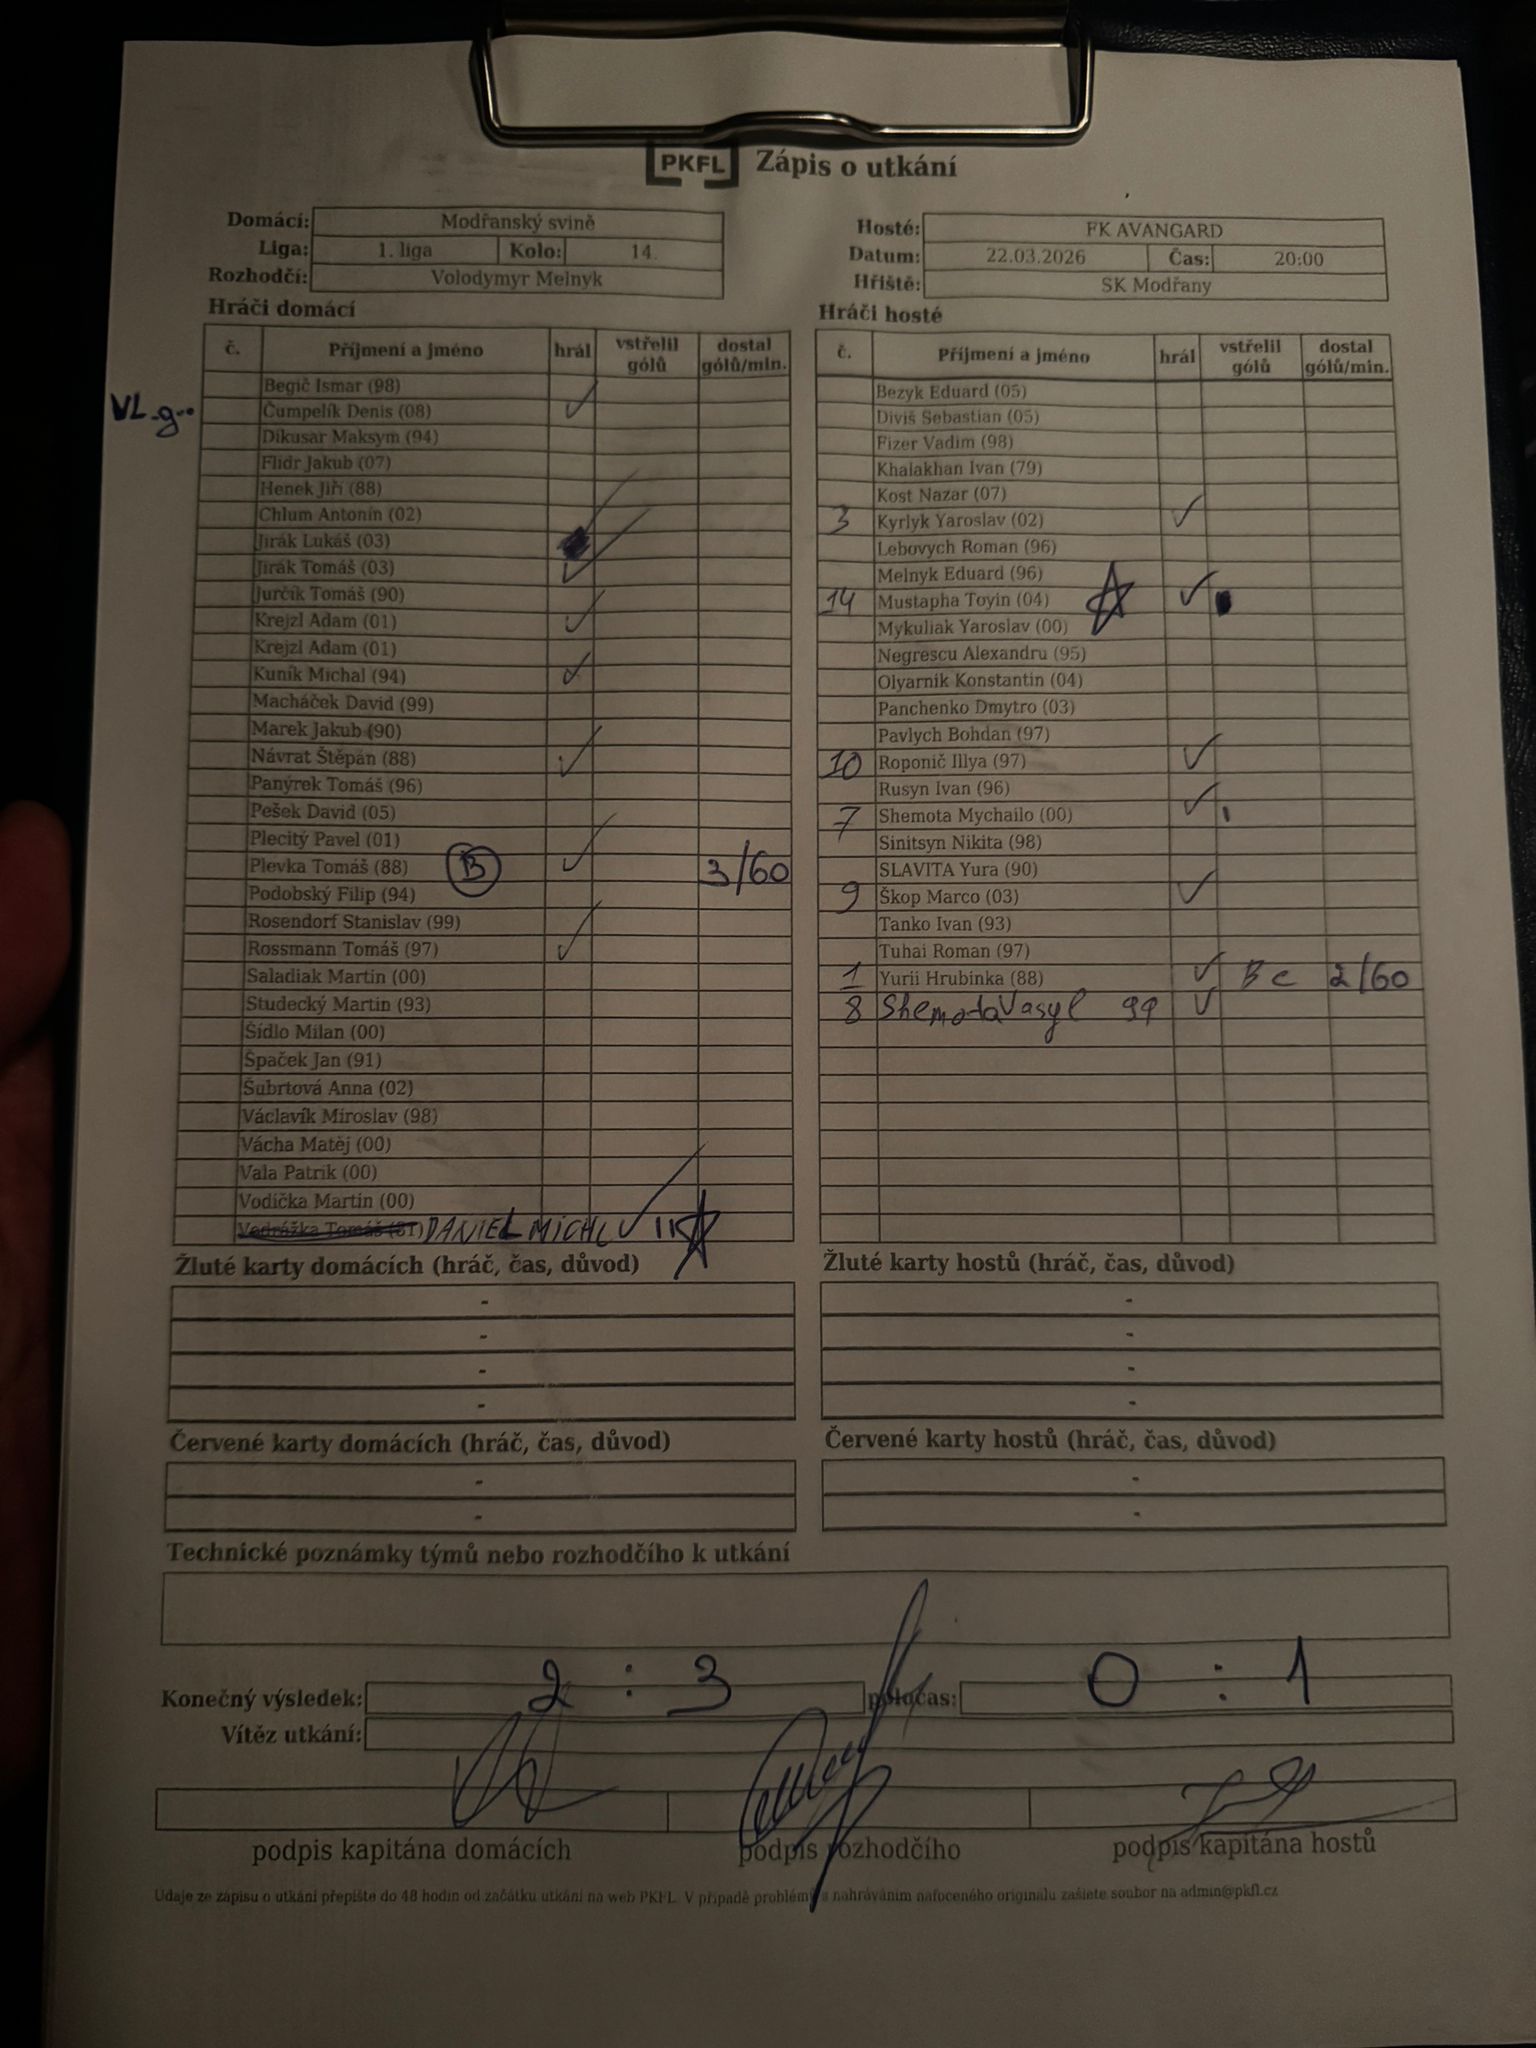 PKFL Zápis o utkání
Domácí: Modřanský svině
Liga: 1. liga Kolo: 14.
Rozhodčí: Volodymyr Melnyk
Hosté: FK AVANGARD
Datum: 22.03.2026 Čas: 20:00
Hřiště: SK Modřany
Hráči domácí
č. Příjmení a jméno hrál vstřelil gólů dostal gólů/min.
Begič Ismar (98)
Čumpelík Denis (08) ✓
Dikusar Maksym (94)
Flidr Jakub (07)
Henek Jiří (88)
Chlum Antonín (02)
Jirák Lukáš (03)
Jirák Tomáš (03) ✓
Jurčík Tomáš (90)
Krejzl Adam (01) ✓
Krejzl Adam (01)
Kuník Michal (94) ✓
Macháček David (99)
Marek Jakub (90)
Návrat Štěpán (88) ✓
Panýrek Tomáš (96)
Pešek David (05)
Plecitý Pavel (01)
Plevka Tomáš (88) B ✓ 3/60
Podobský Filip (94)
Rosendorf Stanislav (99)
Rossmann Tomáš (97) ✓
Saladiak Martin (00)
Studecký Martin (93)
Šídlo Milan (00)
Špaček Jan (91)
Šubrtová Anna (02)
Václavík Miroslav (98)
Vácha Matěj (00)
Vala Patrik (00)
Vodička Martin (00)
DANIEL MICHL ✓ II
Hráči hosté
č. Příjmení a jméno hrál vstřelil gólů dostal gólů/min.
Bezyk Eduard (05)
Diviš Sebastian (05)
Fizer Vadim (98)
Khalakhan Ivan (79)
Kost Nazar (07)
3 Kyrlyk Yaroslav (02) ✓
Lebovych Roman (96)
Melnyk Eduard (96)
14 Mustapha Toyin (04) ✓
Mykuliak Yaroslav (00)
Negrescu Alexandru (95)
Olyarnik Konstantin (04)
Panchenko Dmytro (03)
Pavlych Bohdan (97)
10 Roponič Illya (97) ✓
Rusyn Ivan (96)
7 Shemota Mychailo (00) ✓ I
Sinitsyn Nikita (98)
SLAVITA Yura (90)
9 Škop Marco (03) ✓
Tanko Ivan (93)
Tuhai Roman (97)
1 Yurii Hrubinka (88) ✓ B c 2/60
8 Shemota Vasyl 99 ✓
Žluté karty domácích (hráč, čas, důvod)
-
-
-
-
Žluté karty hostů (hráč, čas, důvod)
-
-
-
-
Červené karty domácích (hráč, čas, důvod)
-
-
Červené karty hostů (hráč, čas, důvod)
-
-
Technické poznámky týmů nebo rozhodčího k utkání
Konečný výsledek: 2 : 3 poločas: 0 : 1
Vítěz utkání:
podpis kapitána domácích podpis rozhodčího podpis kapitána hostů
Údaje ze zápisu o utkání přepište do 48 hodin od začátku utkání na web PKFL. V případě problémů s nahráváním nafoceného originálu zašlete soubor na admin@pkfl.cz